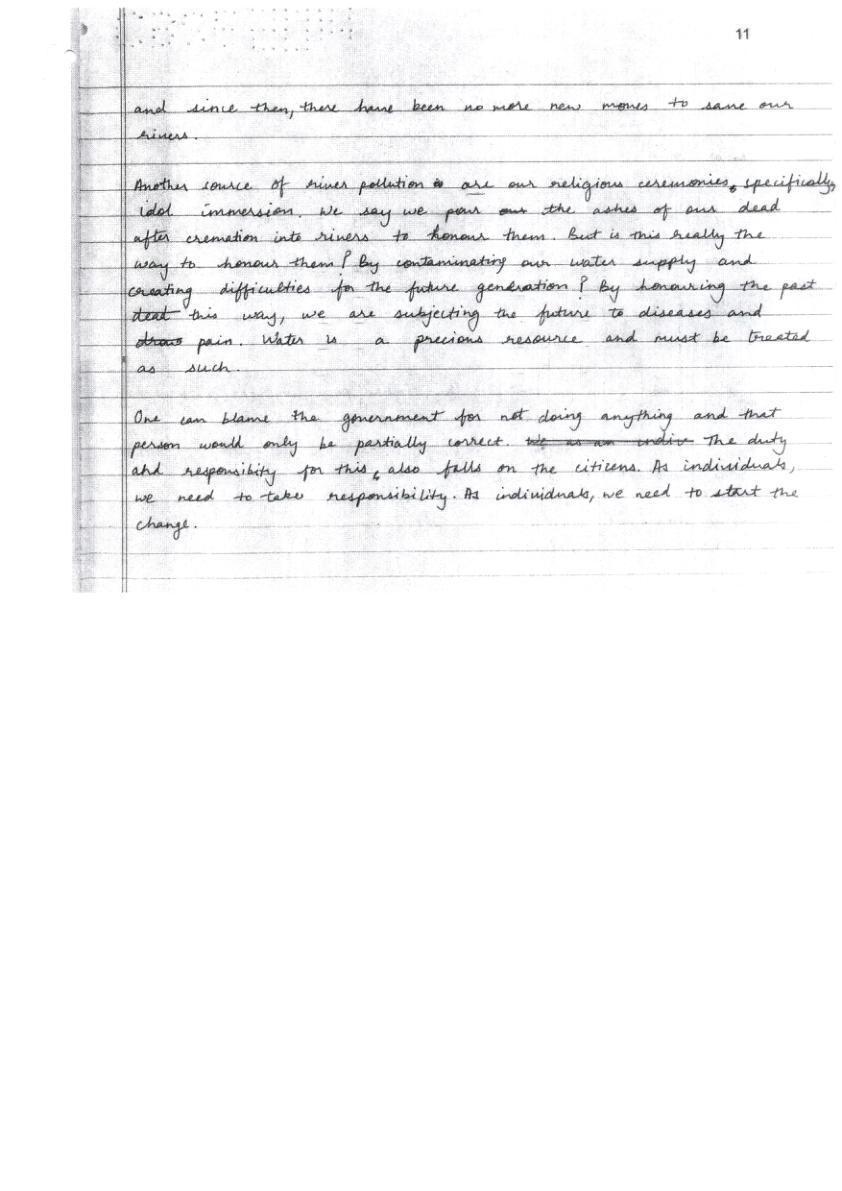 11
and since then, there have been no more new moves to save our
rivers.
Another source of river pollution is are our religious ceremonies, specifically,
idol immersion. We say we pour our the ashes of our dead
after cremation into rivers to honour them. But is this really the
way to honour them? By contaminating our water supply and
creating difficulties for the future generation? By honouring the past
deat this way, we are subjecting the future to diseases and
pain. Water is a precious resource and must be treated
as such.
One can blame the government for not doing anything and that
person would only be partially correct. We as an indiv The duty
and responsibity for this, also falls on the citizens. As individuals,
we need to take responsibility. As individuals, we need to start the
change.